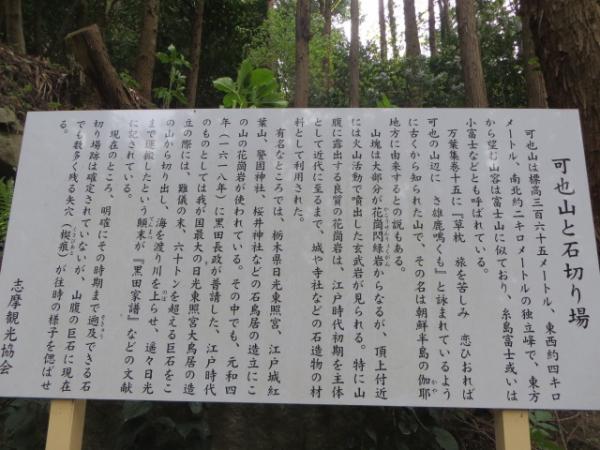 可也山と石切り場
可也山は標高三百六十五メートル、東西約四キロ
メートル、南北約二キロメートルの独立峰で、東方
から望む山容は富士山に似ており、糸島富士或いは
小富士などとも呼ばれている。
万葉集巻十五に『草枕 旅を苦しみ 恋ひおれば
可也の山辺に さ雄鹿鳴くも』と詠まれているよう
に古くから知られた山で、その名は朝鮮半島の伽耶
地方に由来するとの説もある。
山塊は大部分が花崗閃緑岩からなるが、頂上付近
には火山活動で噴出した玄武岩が見られる。特に山
腹に露出する良質の花崗岩は、江戸時代初期を主体
として近代に至るまで、城や寺社などの石造物の材
料として利用された。
有名なところでは、栃木県日光東照宮、江戸城紅
葉山、警固神社、桜井神社などの石鳥居の造立にこ
の山の花崗岩が使われている。その中でも、元和四
年(一六一八年)に黒田長政が普請した、江戸時代
のものとしては我が国最大の日光東照宮大鳥居の造
立の際には、難儀の末、六十トンを超える巨石をこ
の山から切り出し、海を渡り川を上らせ、遙々日光
まで運搬したという顛末が『黒田家譜』などの文献
に記されている。
現在のところ、明確にその時期まで遡及できる石
切り場跡は確定されていないが、山腹の巨石に現在
でも数多く残る矢穴(楔痕)が往時の様子を偲ばせ
る。
志摩観光協会